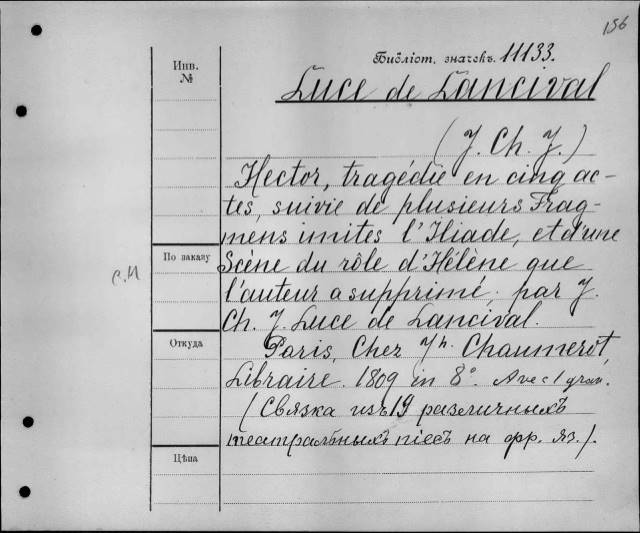 156
Инв.
№
Библіот. значекъ. 11133.
Luce de Lancival
(J. Ch. J.)
Hector, tragédie en cinq ac-
tes, suivie de plusieurs Frag-
mens imités l'Iliade, et d'une
По заказу
Scène du rôle d'Hélène que
с.и
l'auteur a supprimé; par J.
Ch. J. Luce de Lancival.
Откуда
Paris, Chez Jh. Chaumerot,
Libraire. 1809 in 8°. Avec 1 grav.
(Связка изъ 19 различныхъ
театральныхъ піесъ на фр. яз.).
Цѣна